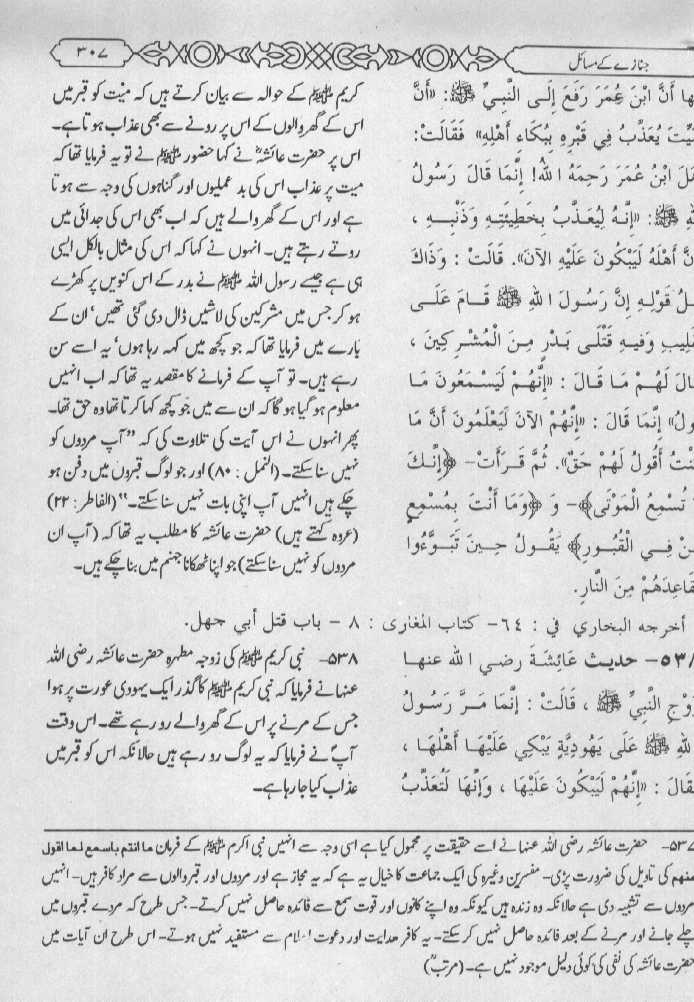 جنازے کے مسائل
۳۰۷
ها أَنَّ ابْنَ عُمَرَ رَفَعَ إِلَى النَّبِيِّ ﷺ: «أَنَّ
يُعَذَّبُ فِي قَبْرِهِ بِبُكَاءِ أَهْلِهِ» فَقَالَتْ:
ابْنُ عُمَرَ رَحِمَهُ اللهُ! إِنَّمَا قَالَ رَسُولُ
ﷺ: «إِنَّهُ لَيُعَذَّبُ بِخَطِيئَتِهِ وَذَنْبِهِ ،
أَهْلَهُ لَيَبْكُونَ عَلَيْهِ الآنَ». قَالَتْ : وَذَاكَ
قَوْلِهِ إِنَّ رَسُولَ اللهِ ﷺ قَامَ عَلَى
وَفِيهِ قَتْلَى بَدْرٍ مِنَ الْمُشْرِكِينَ ،
لَهُمْ مَا قَالَ : «إِنَّهُمْ لَيَسْمَعُونَ مَا
إِنَّمَا قَالَ : «إِنَّهُمُ الآنَ لَيَعْلَمُونَ أَنَّ مَا
أَقُولُ لَهُمْ حَقٌّ». ثُمَّ قَرَأَتْ- ﴿إِنَّكَ
تُسْمِعُ الْمَوْتَى﴾- وَ ﴿وَمَا أَنْتَ بِمُسْمِعٍ
فِي الْقُبُورِ﴾ يَقُولُ حِينَ تَبَوَّءُوا
مِنَ النَّارِ.
کریم ﷺ کے حوالہ سے بیان کرتے ہیں کہ میت کو قبر میں
اس کے گھر والوں کے اس پر رونے سے بھی عذاب ہوتا ہے۔
اس پر حضرت عائشہؓ نے کہا حضور ﷺ نے تو یہ فرمایا تھا کہ
میت پر عذاب اس کی بد عملیوں اور گناہوں کی وجہ سے ہوتا
ہے اور اس کے گھر والے ہیں کہ اب بھی اس کی جدائی میں
روتے رہتے ہیں۔ انہوں نے کہا کہ اس کی مثال بالکل ایسی
ہی ہے جیسے رسول اللہ ﷺ نے بدر کے اس کنویں پر کھڑے
ہو کر جس میں مشرکین کی لاشیں ڈال دی گئی تھیں' ان کے
بارے میں فرمایا تھا کہ جو کچھ میں کہہ رہا ہوں' یہ اسے سن
رہے ہیں۔ تو آپ کے فرمانے کا مقصد یہ تھا کہ اب انہیں
معلوم ہو گیا ہو گا کہ ان سے میں جو کچھ کہا کرتا تھا وہ حق تھا۔
پھر انہوں نے اس آیت کی تلاوت کی کہ "آپ مردوں کو
نہیں سنا سکتے۔ (النمل : ۸۰) اور جو لوگ قبروں میں دفن ہو
چکے ہیں انہیں آپ اپنی بات نہیں سنا سکتے۔" (الفاطر : ۲۲)
(عروہ کہتے ہیں) حضرت عائشہ کا مطلب یہ تھا کہ (آپ ان
مردوں کو نہیں سنا سکتے) جو اپنا ٹھکانا جہنم میں بنا چکے ہیں۔
أخرجه البخاري في : ٦٤- كتاب المغازى : ٨ - باب قتل أبي جهل.
- حديث عَائِشَةَ رضي الله عنها
النَّبِيِّ ﷺ ، قَالَتْ : إِنَّمَا مَرَّ رَسُولُ
ﷺ عَلَى يَهُودِيَّةٍ يَبْكِي عَلَيْهَا أَهْلُهَا ،
: «إِنَّهُمْ لَيَبْكُونَ عَلَيْهَا ، وَإِنَّهَا لَتُعَذَّبُ
۵۳۸- نبی کریم ﷺ کی زوجہ مطہرہ حضرت عائشہ رضی اللہ
عنہا نے فرمایا کہ نبی کریم ﷺ کا گذر ایک یہودی عورت پر ہوا
جس کے مرنے پر اس کے گھر والے رو رہے تھے۔ اس وقت
آپؐ نے فرمایا کہ یہ لوگ رو رہے ہیں حالانکہ اس کو قبر میں
عذاب کیا جا رہا ہے۔
۵۳۷- حضرت عائشہ رضی اللہ عنہا نے اسے حقیقت پر محمول کیا ہے اسی وجہ سے انہیں نبی اکرم ﷺ کے فرمان ما انتم باسمع لما اقول
منھم کی تاویل کی ضرورت پڑی۔ مفسرین وغیرہ کی ایک جماعت کا خیال یہ ہے کہ یہ مجاز ہے اور مردوں اور قبر والوں سے مراد کافر ہیں۔ انہیں
مردوں سے تشبیہ دی ہے حالانکہ وہ زندہ ہیں کیونکہ وہ اپنے کانوں اور قوت سمع سے فائدہ حاصل نہیں کرتے۔ جس طرح کہ مردے قبروں میں
چلے جانے اور مرنے کے بعد فائدہ حاصل نہیں کر سکتے۔ یہ کافر ہدایت اور دعوت اسلام سے مستفید نہیں ہوتے۔ اس طرح ان آیات میں
حضرت عائشہ کی نفی کی کوئی دلیل موجود نہیں ہے۔ (مرتبؒ)